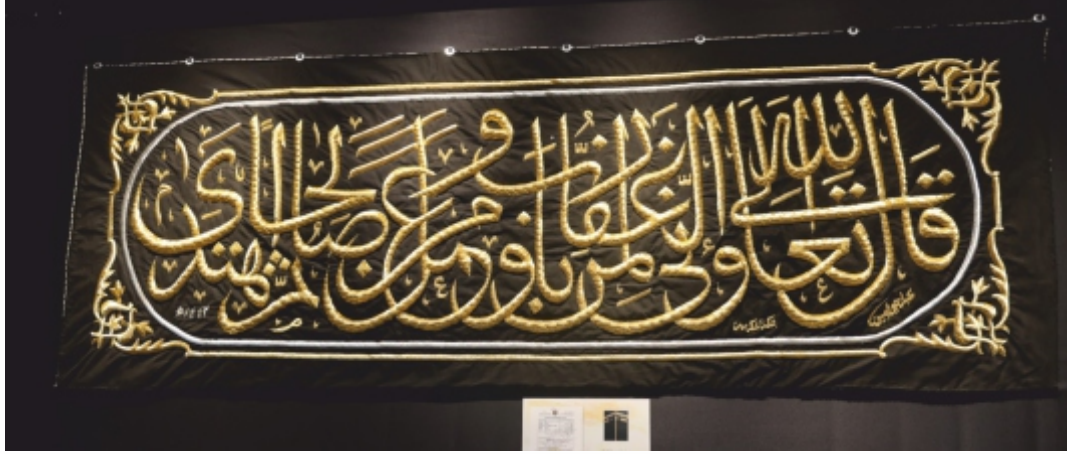 قال الله تعالى وإني لغفار لمن تاب وآمن وعمل صالحا ثم اهتدى